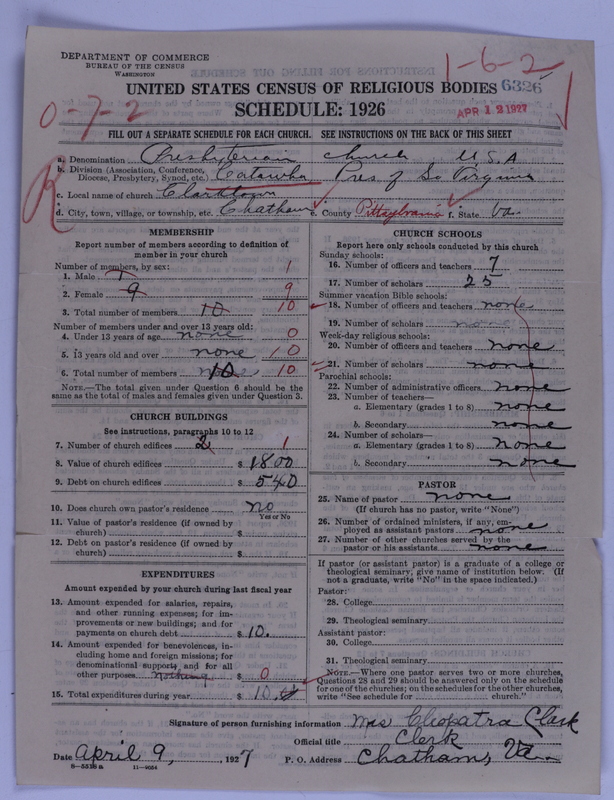 DEPARTMENT OF COMMERCE
BUREAU OF THE CENSUS
WASHINGTON
1-6-2
UNITED STATES CENSUS OF RELIGIOUS BODIES 6326
0-7-2
SCHEDULE: 1926
APR 12 1927
FILL OUT A SEPARATE SCHEDULE FOR EACH CHURCH. SEE INSTRUCTIONS ON THE BACK OF THIS SHEET
a. Denomination Presbyterian church U.S.A
b. Division (Association, Conference, Diocese, Presbytery, Synod, etc.) Catawba Pres. of So Virginia
R
c. Local name of church Clarktown
d. City, town, village, or township, etc. Chatham e. County Pittsylvania f. State Va.
MEMBERSHIP
Report number of members according to definition of
member in your church
Number of members, by sex:
1. Male 1 1
2. Female 9 9
3. Total number of members 10 10
Number of members under and over 13 years old:
4. Under 13 years of age none 0
5. 13 years old and over none 10
6. Total number of members 10 10
NOTE.—The total given under Question 6 should be the
same as the total of males and females given under Question 3.
CHURCH BUILDINGS
See instructions, paragraphs 10 to 12
7. Number of church edifices 2 1
8. Value of church edifices $ 1800
9. Debt on church edifices $ 540
10. Does church own pastor's residence no
Yes or No
11. Value of pastor's residence (if owned by
church) $
12. Debt on pastor's residence (if owned by
church) $
EXPENDITURES
Amount expended by your church during last fiscal year
13. Amount expended for salaries, repairs,
and other running expenses; for im-
provements or new buildings; and for
payments on church debt $ 10.
14. Amount expended for benevolences, in-
cluding home and foreign missions; for
denominational support, and for all
other purposes nothing $ 0
15. Total expenditures during year $ 10.
CHURCH SCHOOLS
Report here only schools conducted by this church
Sunday schools:
16. Number of officers and teachers 7
17. Number of scholars 25
Summer vacation Bible schools:
18. Number of officers and teachers none
19. Number of scholars none
Week-day religious schools:
20. Number of officers and teachers none
21. Number of scholars none
Parochial schools:
22. Number of administrative officers none
23. Number of teachers—
a. Elementary (grades 1 to 8) none
b. Secondary none
24. Number of scholars—
a. Elementary (grades 1 to 8) none
b. Secondary none
PASTOR
25. Name of pastor none
(If church has no pastor, write "None")
26. Number of ordained ministers, if any, em-
ployed as assistant pastors none
27. Number of other churches served by the
pastor or his assistants none
If pastor (or assistant pastor) is a graduate of a college or
theological seminary, give name of institution below. (If
not a graduate, write "No" in the space indicated.)
Pastor:
28. College
29. Theological seminary
Assistant pastor:
30. College
31. Theological seminary
NOTE.—Where one pastor serves two or more churches,
Questions 28 and 29 should be answered only on the schedule
for one of the churches; on the schedules for the other churches,
write "See schedule for church."
Signature of person furnishing information Mrs Cleopatra Clark
Official title Clerk
Date April 9, 1927 P. O. Address Chatham, Va
8—5518a 11—9054